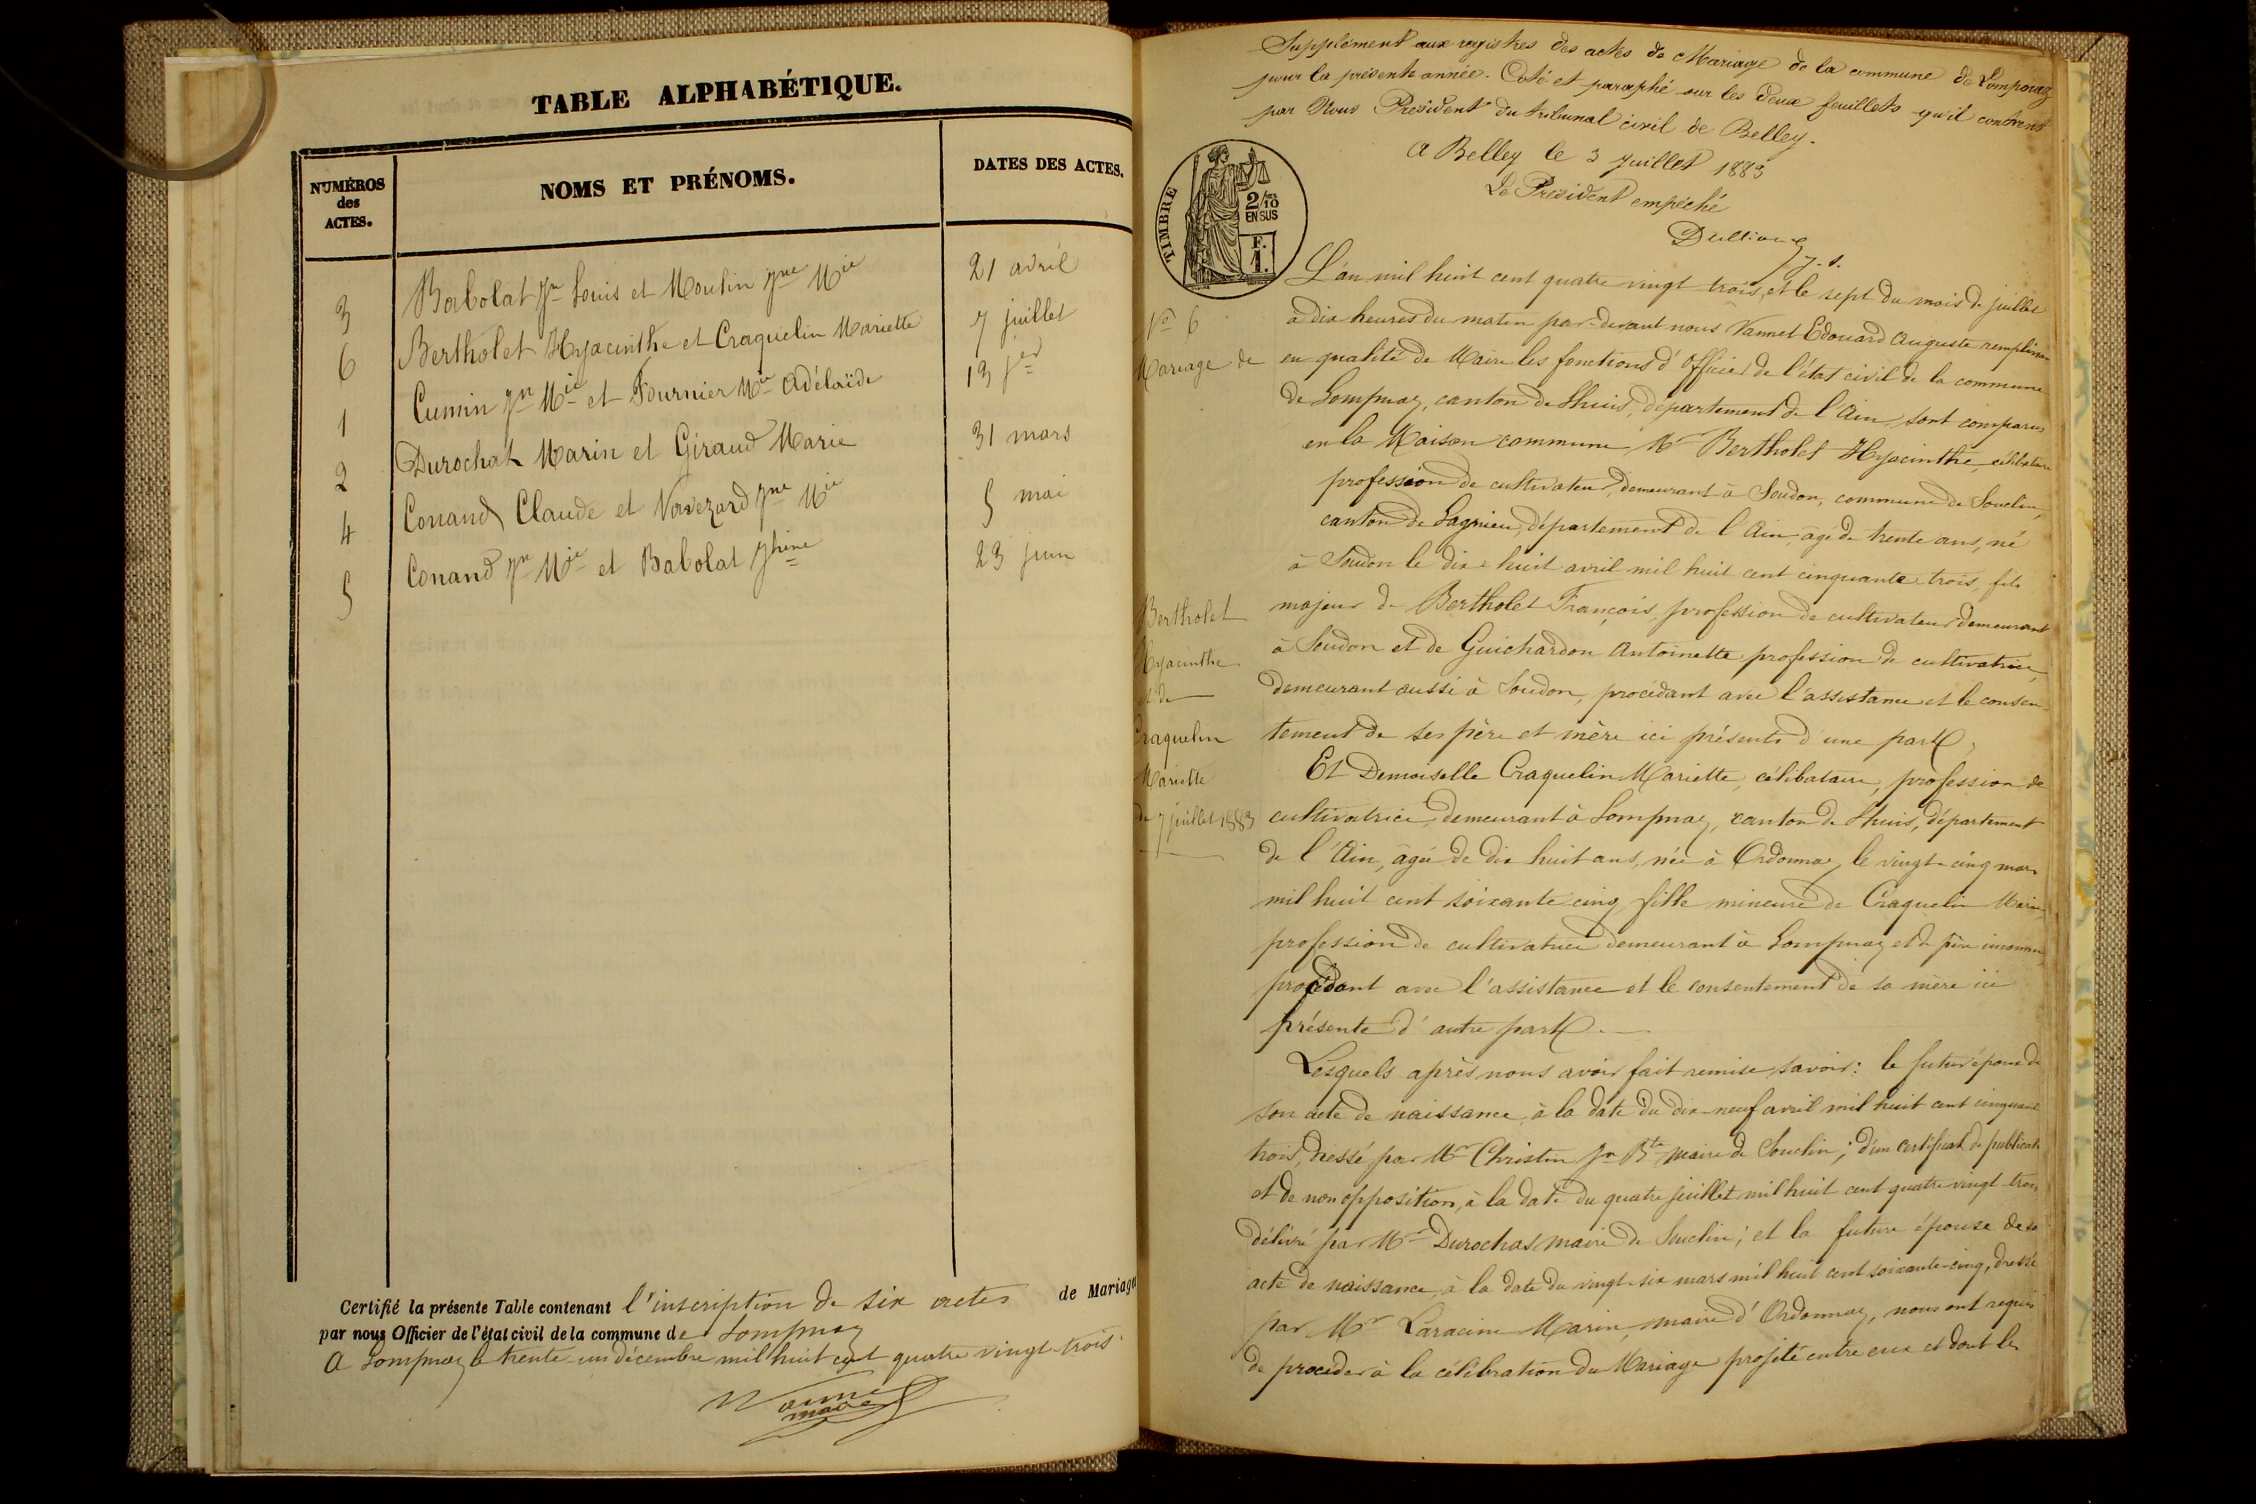 TABLE ALPHABÉTIQUE.
NUMÉROS des ACTES.
NOMS ET PRÉNOMS.
DATES DES ACTES.
3 Babolat Jn Louis et Moulin Jne Mie 21 avril
6 Bertholet Hyacinthe et Craquelin Mariette 7 juillet
1 Cumin Jn Mie et Fournier Mie Adélaïde 13 Jer
2 Durochat Marin et Giraud Marie 31 mars
4 Conand Claude et Vavezard Jne Mie 5 mai
5 Conand Jn Mie et Babolat Jhine 23 juin
Certifié la présente Table contenant l'inscription de six actes de Mariage
par nous Officier de l'état civil de la commune de Lompnaz
A Lompnaz le trente-un décembre mil huit cent quatre vingt-trois
maire
Supplément aux registres des actes de Mariage de la commune de Lompnaz
pour la présente année. Coté et paraphé sur les deux feuillets qu'il contient
par Nous Président du tribunal civil de Belley.
A Belley le 3 Juillet 1883
Le Président empêché
J. s.
TIMBRE
2/10 EN SUS
F. 1.
L'an mil huit cent quatre vingt-trois, et le sept du mois de juillet
No 6
à dix heures du matin par-devant nous Vannet Edouard Auguste remplissant
Mariage de
en qualité de Maire les fonctions d'Officier de l'état civil de la commune
de Lompnaz, canton de Lhuis, département de l'Ain, sont comparus
en la Maison commune Mr Bertholet Hyacinthe célibataire
profession de cultivateur, demeurant à Soudon, commune de Souclin,
canton de Lagnieu, département de l'Ain, âgé de trente ans, né
à Soudon le dix-huit avril mil huit cent cinquante-trois, fils
Bertholet
Hyacinthe
et de
Craquelin
Mariette
du 7 juillet 1883
majeur de Bertholet François, profession de cultivateur demeurant
à Soudon et de Guichardon Antoinette profession de cultivatrice,
demeurant aussi à Soudon, procédant avec l'assistance et le consen-
tement de ses père et mère ici présents d'une part,
Et Demoiselle Craquelin Mariette, célibataire, profession de
cultivatrice, demeurant à Lompnaz, canton de Lhuis, département
de l'Ain, âgée de dix huit ans, née à Ordonnaz le vingt-cinq mars
mil huit cent soixante cinq, fille mineure de Craquelin Marie
profession de cultivatrice demeurant à Lompnaz et de père inconnu
procédant avec l'assistance et le consentement de sa mère ici
présente d'autre part.
Lesquels après nous avoir fait remise, savoir: le futur époux de
son acte de naissance, à la date du dix-neuf avril mil huit cent cinquante
trois, dressé par Mr Christin Jn Bte maire de Souclin; d'un certificat de publication
et de non opposition, à la date du quatre juillet mil huit cent quatre vingt-trois
délivré par Mr Durochas maire de Souclin; et la future épouse de son
acte de naissance, à la date du vingt-six mars mil huit cent soixante-cinq, dressé
par Mr Laracine Marin, maire d'Ordonnaz, nous ont requis
de procéder à la célébration du Mariage projeté entre eux et dont les